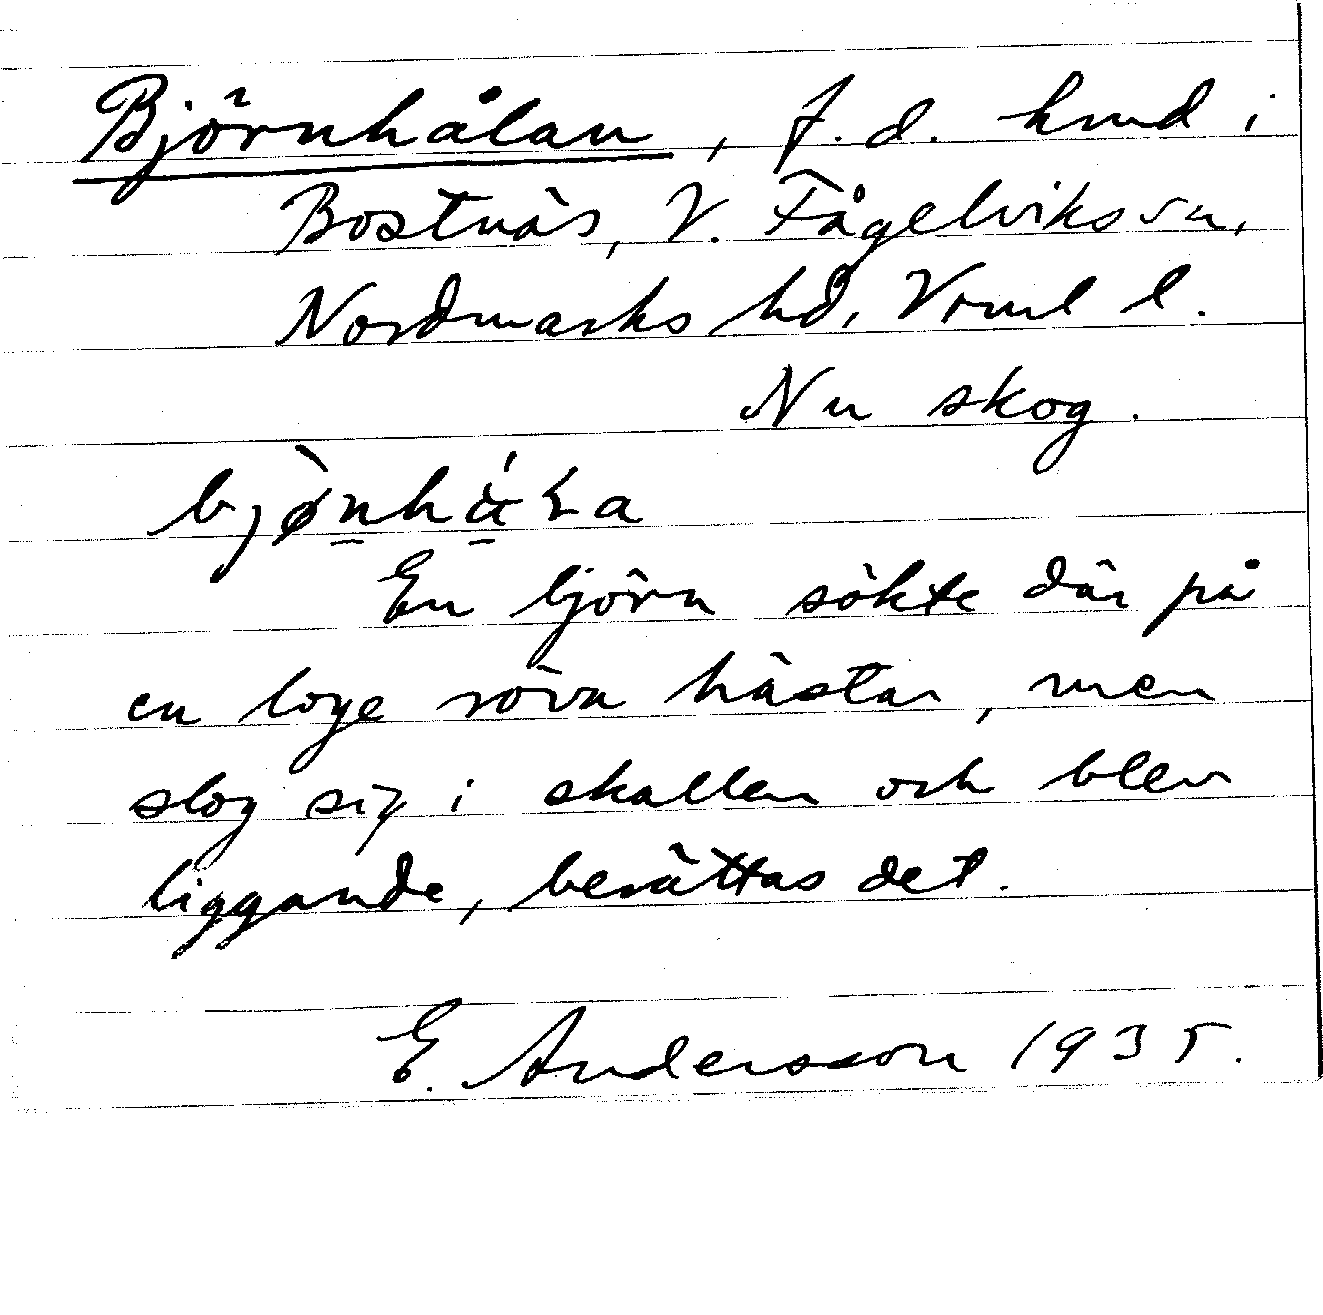 Björnhålan, f. d. hmd i
Bostnäs, V. Fågelviks sn,
Nordmarks hd, Vrml l.
Nu skog.
bjø̀n̲hǻ̲ɫa
En björn sökte där på
en loge röva hästar, men
slog sig i skallen och blev
liggande, berättas det.
E. Andersson 1935.